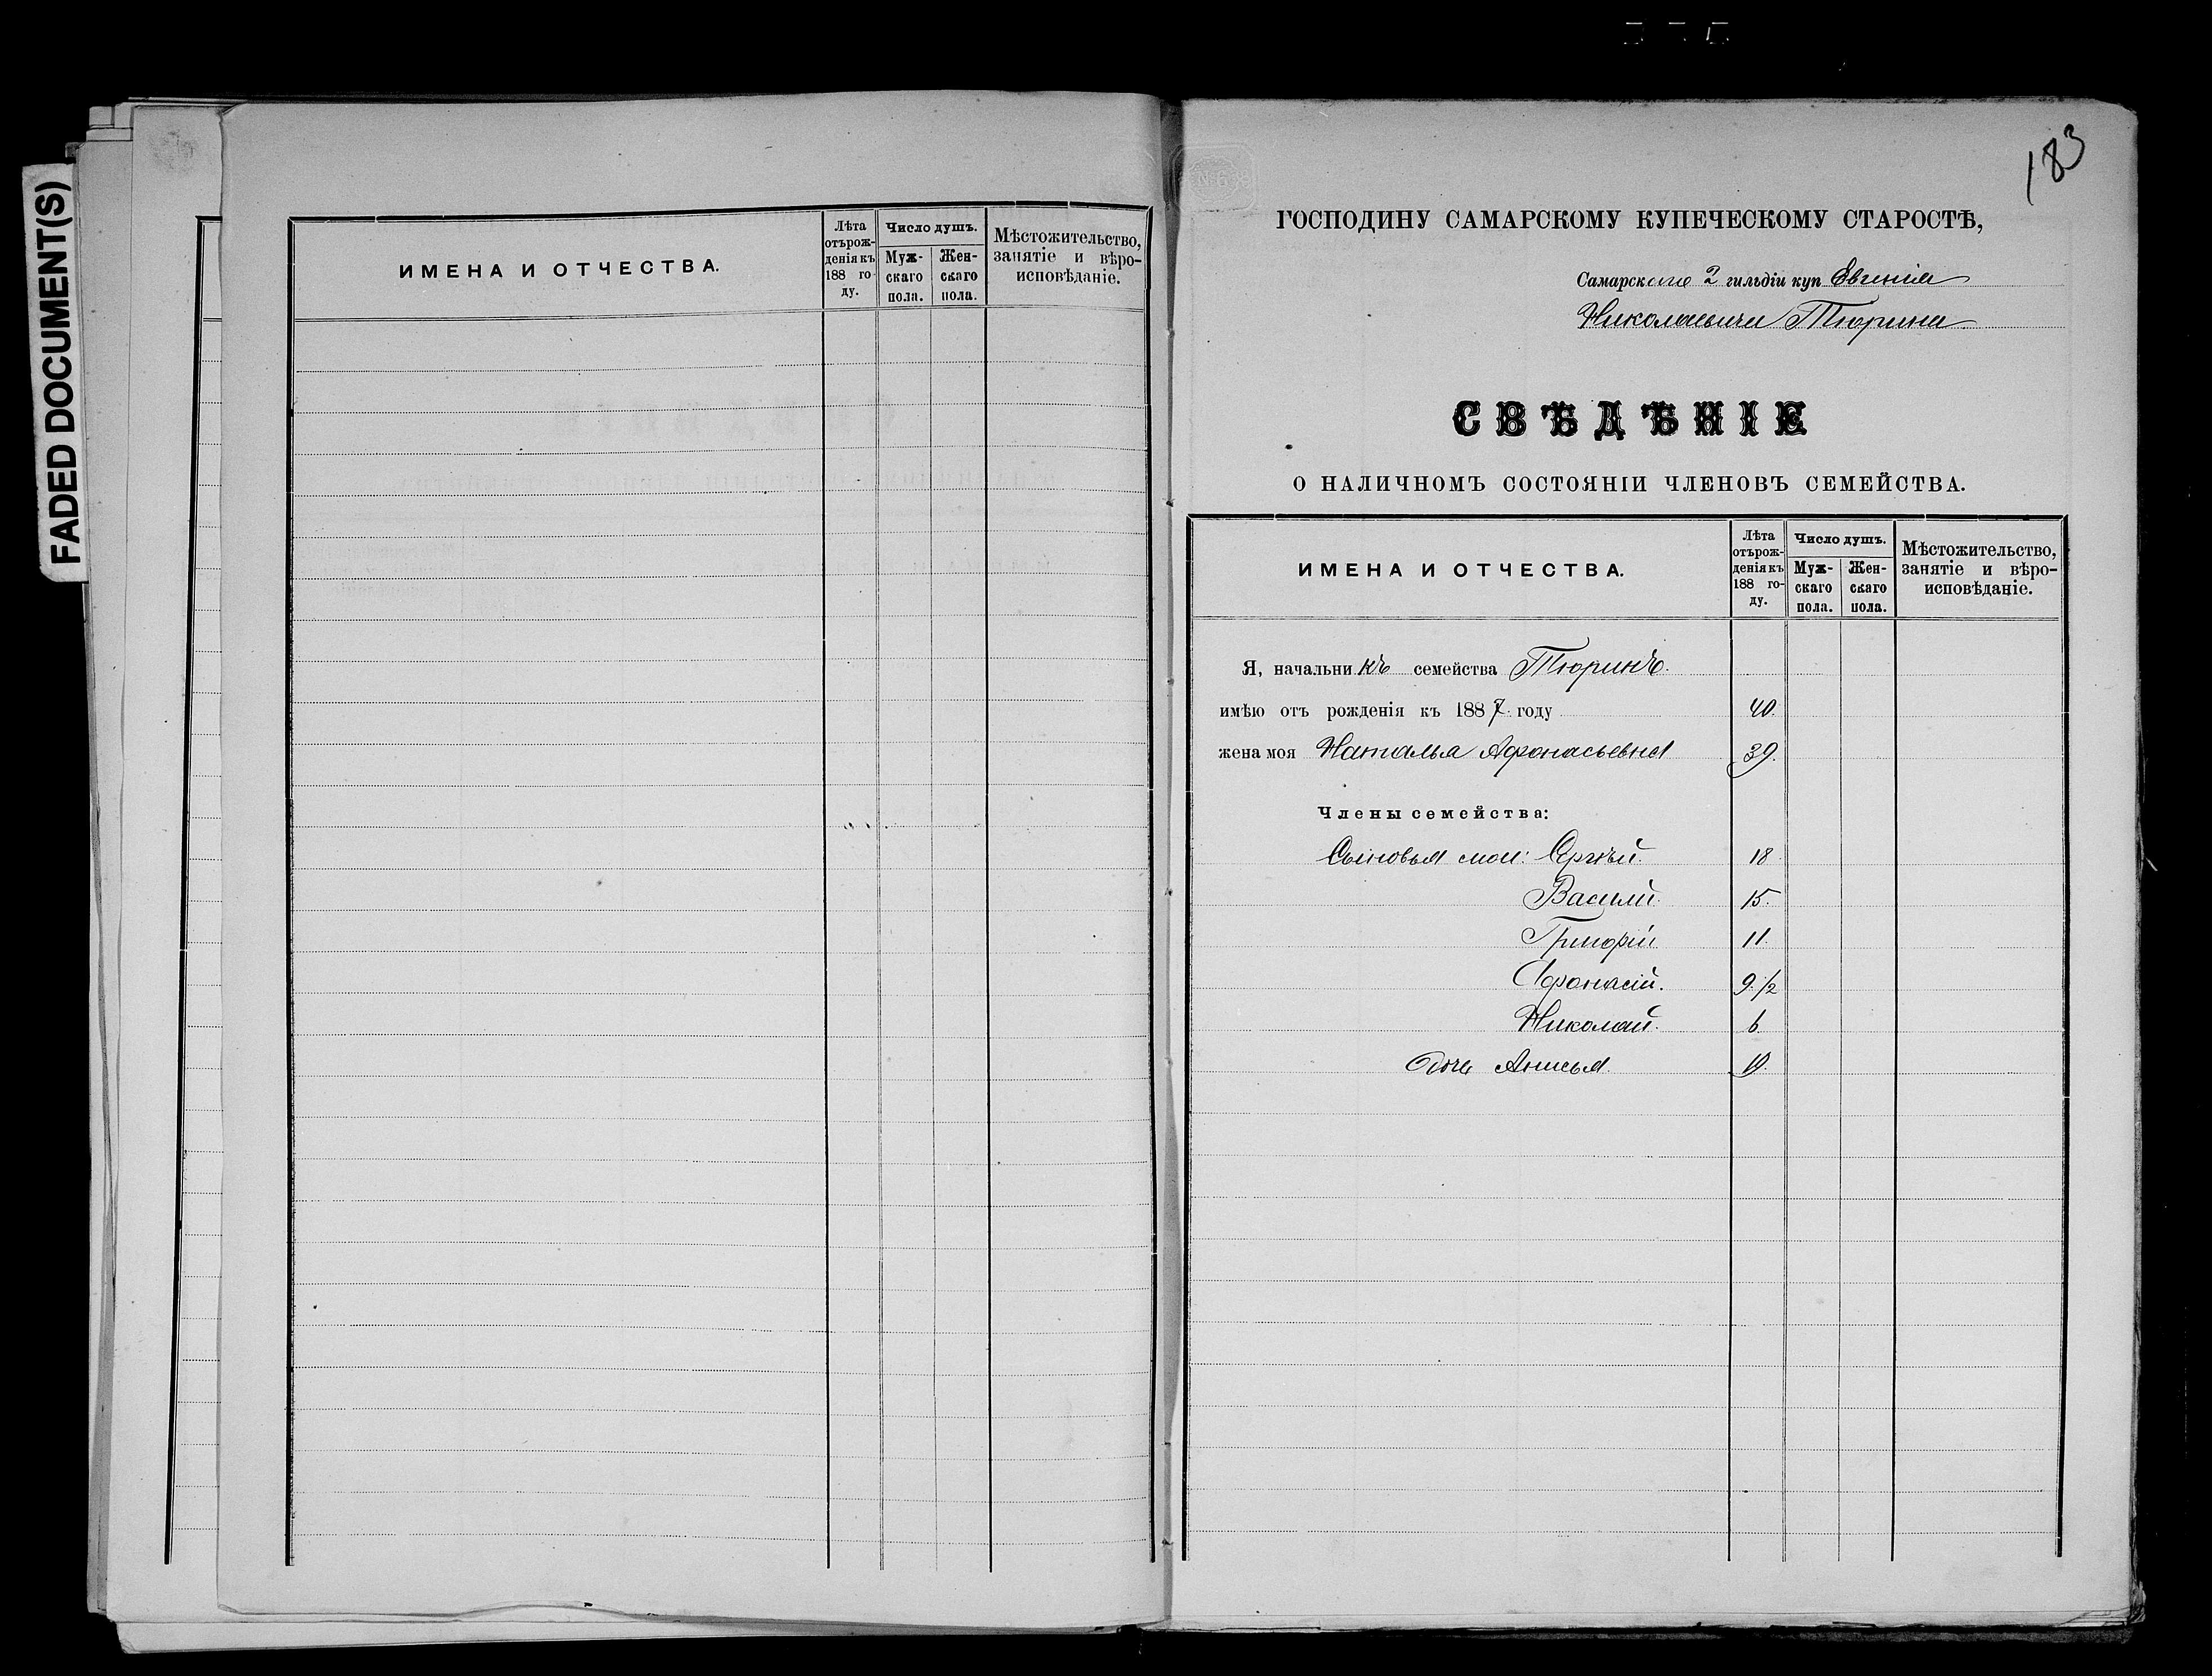 FADED DOCUMENT(S)
ИМЕНА И ОТЧЕСТВА.
Лѣта
отърож-
денія къ
188 го-
ду.
Число душъ.
Муж-
скаго
пола.
Жен-
скаго
пола.
Мѣстожительство,
занятіе и вѣро-
исповѣданіе.
183
ГОСПОДИНУ САМАРСКОМУ КУПЕЧЕСКОМУ СТАРОСТѢ,
Самарскаго 2 гильдіи куп Евгенія
Николаевича Тюрина
СВѢДѢНІЕ
О НАЛИЧНОМЪ СОСТОЯНІИ ЧЛЕНОВЪ СЕМЕЙСТВА.
ИМЕНА И ОТЧЕСТВА.
Лѣта
отърож-
денія къ
188 го-
ду.
Число душъ.
Муж-
скаго
пола.
Жен-
скаго
пола.
Мѣстожительство,
занятіе и вѣро-
исповѣданіе.
Я, начальникъ семейства Тюринъ.
имѣю отъ рожденія къ 1887. году 40.
жена моя Наталья Афонасьевна 39.
Члены семейства:
Сыновья мои: Сергѣй. 18
Василій. 15.
Григорій 11.
Афонасій. 9 1/2
Николай. 6
дочь Анисья.